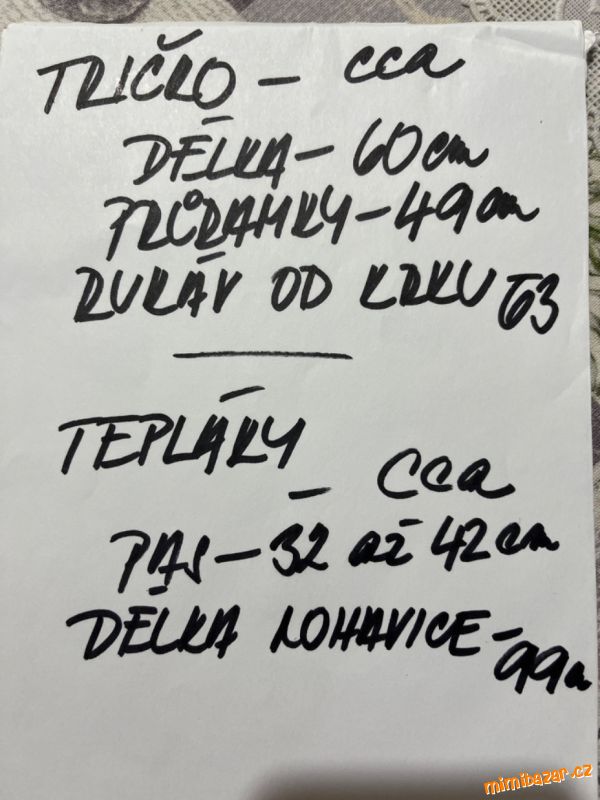 TRIČKO – cca
DÉLKA – 60 cm
PRŮRAMKY – 49 cm
RUKÁV OD KRKU 63
TEPLÁKY
– cca
PAS – 32 až 42 cm
DÉLKA NOHAVICE – 99
mimibazar.cz